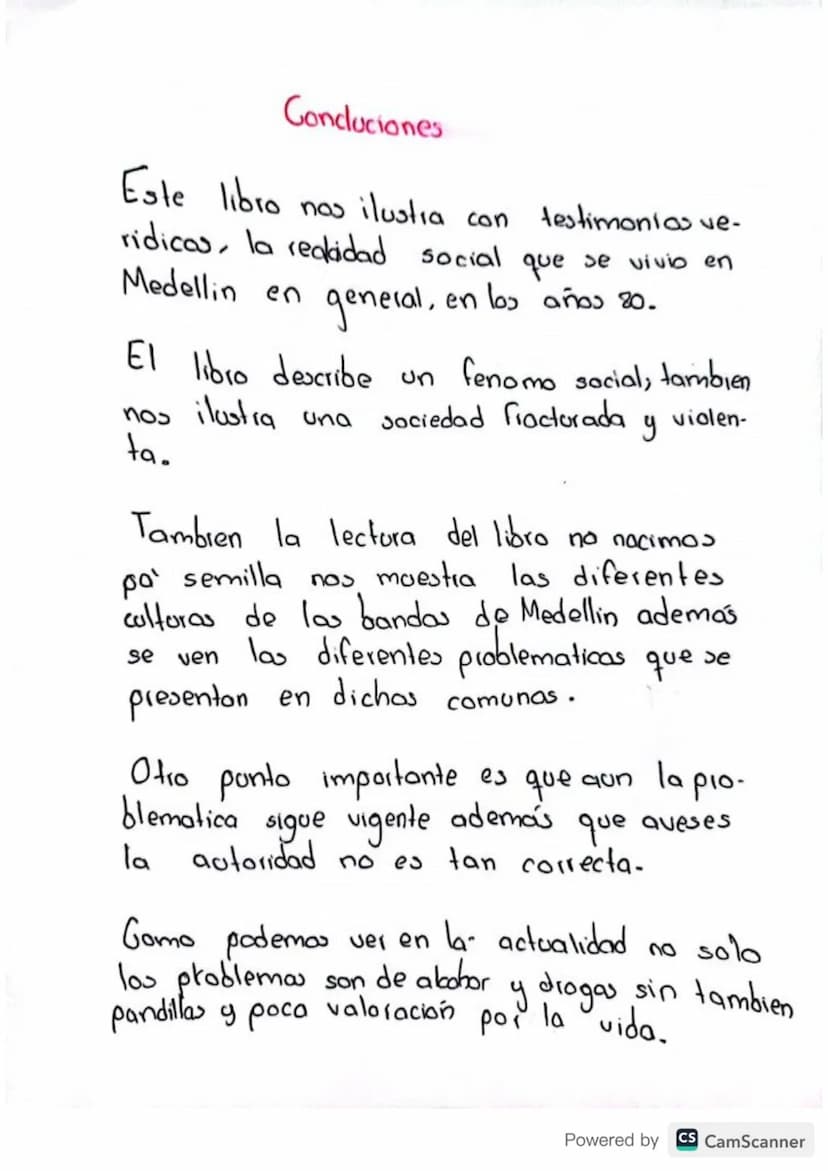 Concluciones
Este libro nos ilustra con testimonios ve-
ridicos, la realidad social que se vivio en
Medellin en general, en los años 80.
El libro describe un fenomo social, tambien
nos ilustra una sociedad fracturada y violen-
ta.
Tambien la lectura del libro no nacimos
pa' semilla nos muestra las diferentes
culturas de las bandas de Medellin además
se ven las diferentes problematicas que se
presentan en dichas comunas.
Otro punto importante es que aun la pro-
blematica sigue vigente además que aveses
la autoridad no es tan correcta.
Como podemos ver en la actualidad no solo
los problemas son de alcohor y drogas sin tambien
pandillas y poca valoración por la vida.
Powered by CS CamScanner